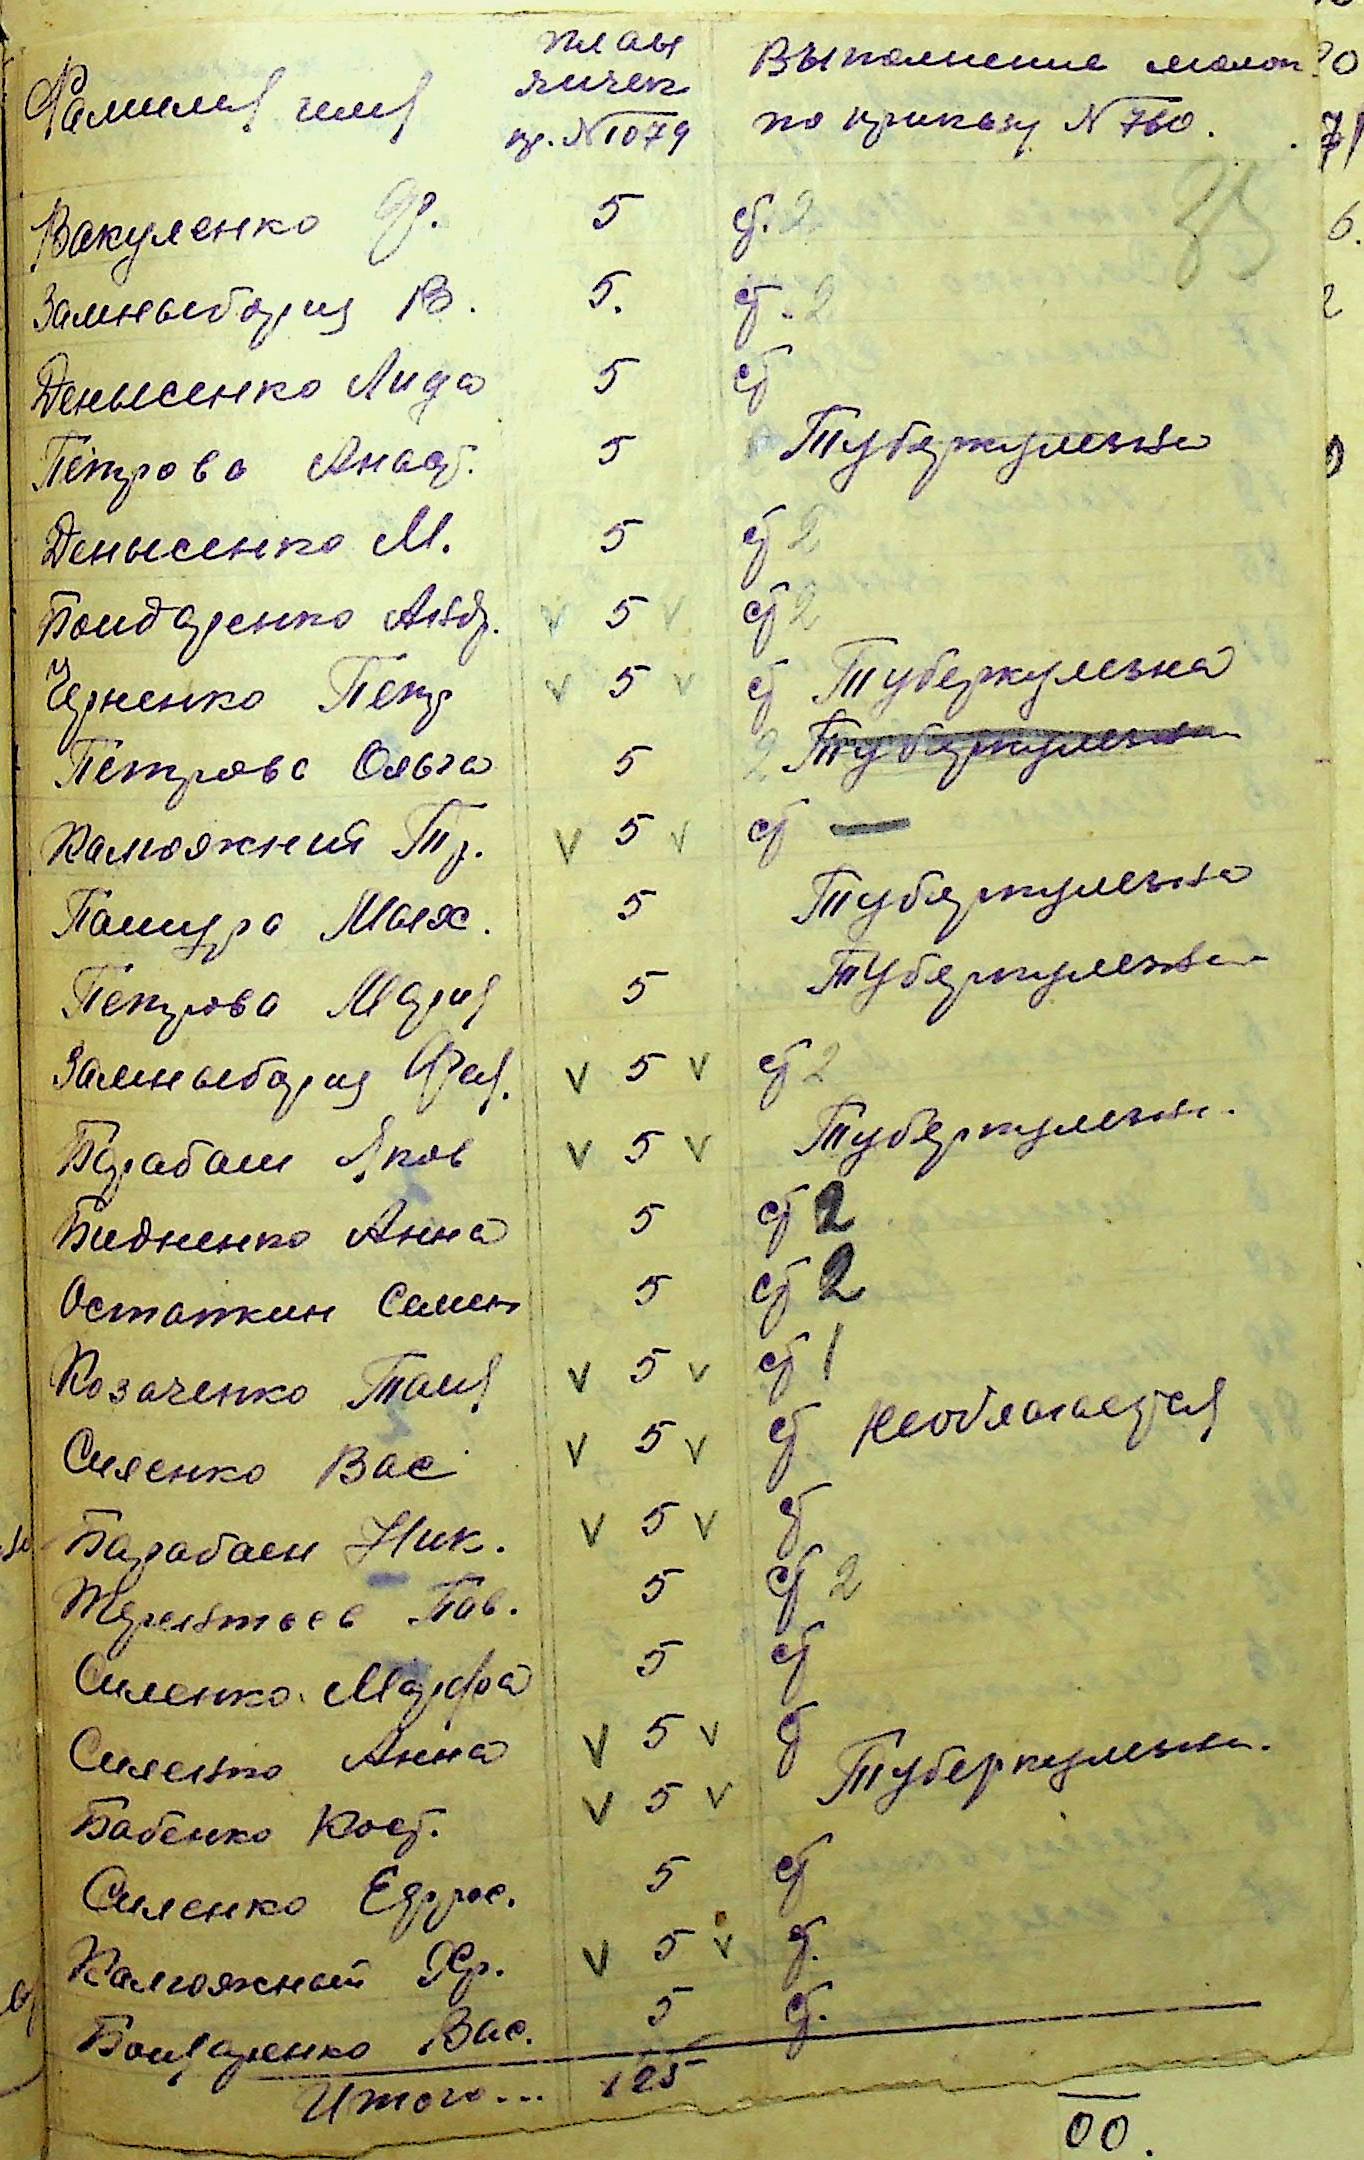 Фамилия имя план яичек пр. №1079 Выполнение молок по приказу №760.
35
Вакуленко Ф. 5 б. 2
Замныборщ В. 5. б. 2
Денысенко Лида 5 б
Петрова Анаст. 5 Туберкулезна
Денысенко М. 5 б 2
Бондаренко Андр. v 5 v б 2
Черненко Петр v 5 v б Туберкулезна
Петрова Ольга 5 2 Туберкулезна
Калюжний Тр. v 5 v б —
Пашура Мых. 5 Туберкулезна
Петрова Мария 5 Туберкулезна
Замныборщ v 5 v б 2
Барабаш Яков v 5 v Туберкулезн.
Бидненко Анна 5 б 2
Остапкин Семен 5 б 2
Козаченко Таня v 5 v б 1
Силенко Вас v 5 v б необлагается
Барабаш Ник. v 5 v б
Терентьев Пав. 5 б 2
Силенко Марфа 5 б
Силенко Анна v 5 v б
Бабенко Кост. v 5 v Туберкулезн.
Силенко Ефрос. 5 б
Калюжный v 5 v б.
Бондаренко Вас. 5 б.
Итого... 125
00.